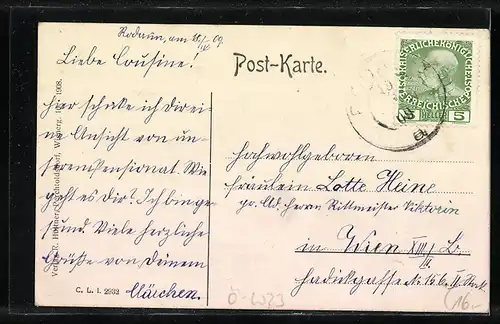 Rodaun, am
Liebe Cousine!
hier schicke ich dir eine
Ansicht von unserem
Pensionat. Wie
geht es Dir? Ich bin gesund
Viele herzliche
Grüße von Deinem
Klärchen.
Post-Karte.
C. L. I. 2932
KAISERLICHE KÖNIGLICHE
ÖSTERREICHISCHE
HELLER
5
Hochwohlgeboren
Fräulein Lotte Heine
pr. Ad. Herrn Rittmeister Viktorin
in Wien XIII/
Hadikgasse
Ö-2023
16.-